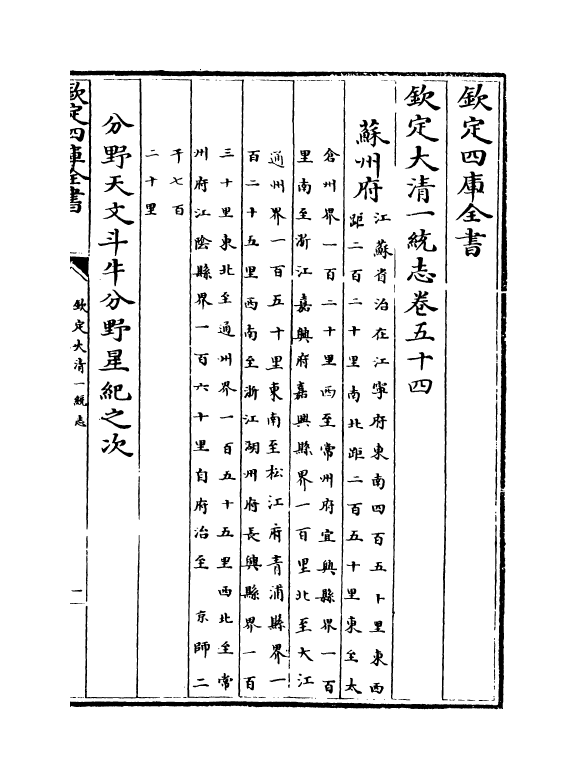 欽定四庫全書
欽定大清一統志卷五十四
蘇州府
江蘇省治在江寧府東南四百五十里東西
距二百二十里南北距二百五十里東至太
倉州界一百二十里西至常州府宜興縣界一百
里南至浙江嘉興府嘉興縣界一百里北至大江
通州界一百五十里東南至松江府青浦縣界一
百二十五里西南至浙江湖州府長興縣界一百
三十里東北至通州界一百五十五里西北至常
州府江陰縣界一百六十里自府治至 京師二
千七百
二十里
分野天文斗牛分野星紀之次
欽定四庫全書
欽定大清一統志